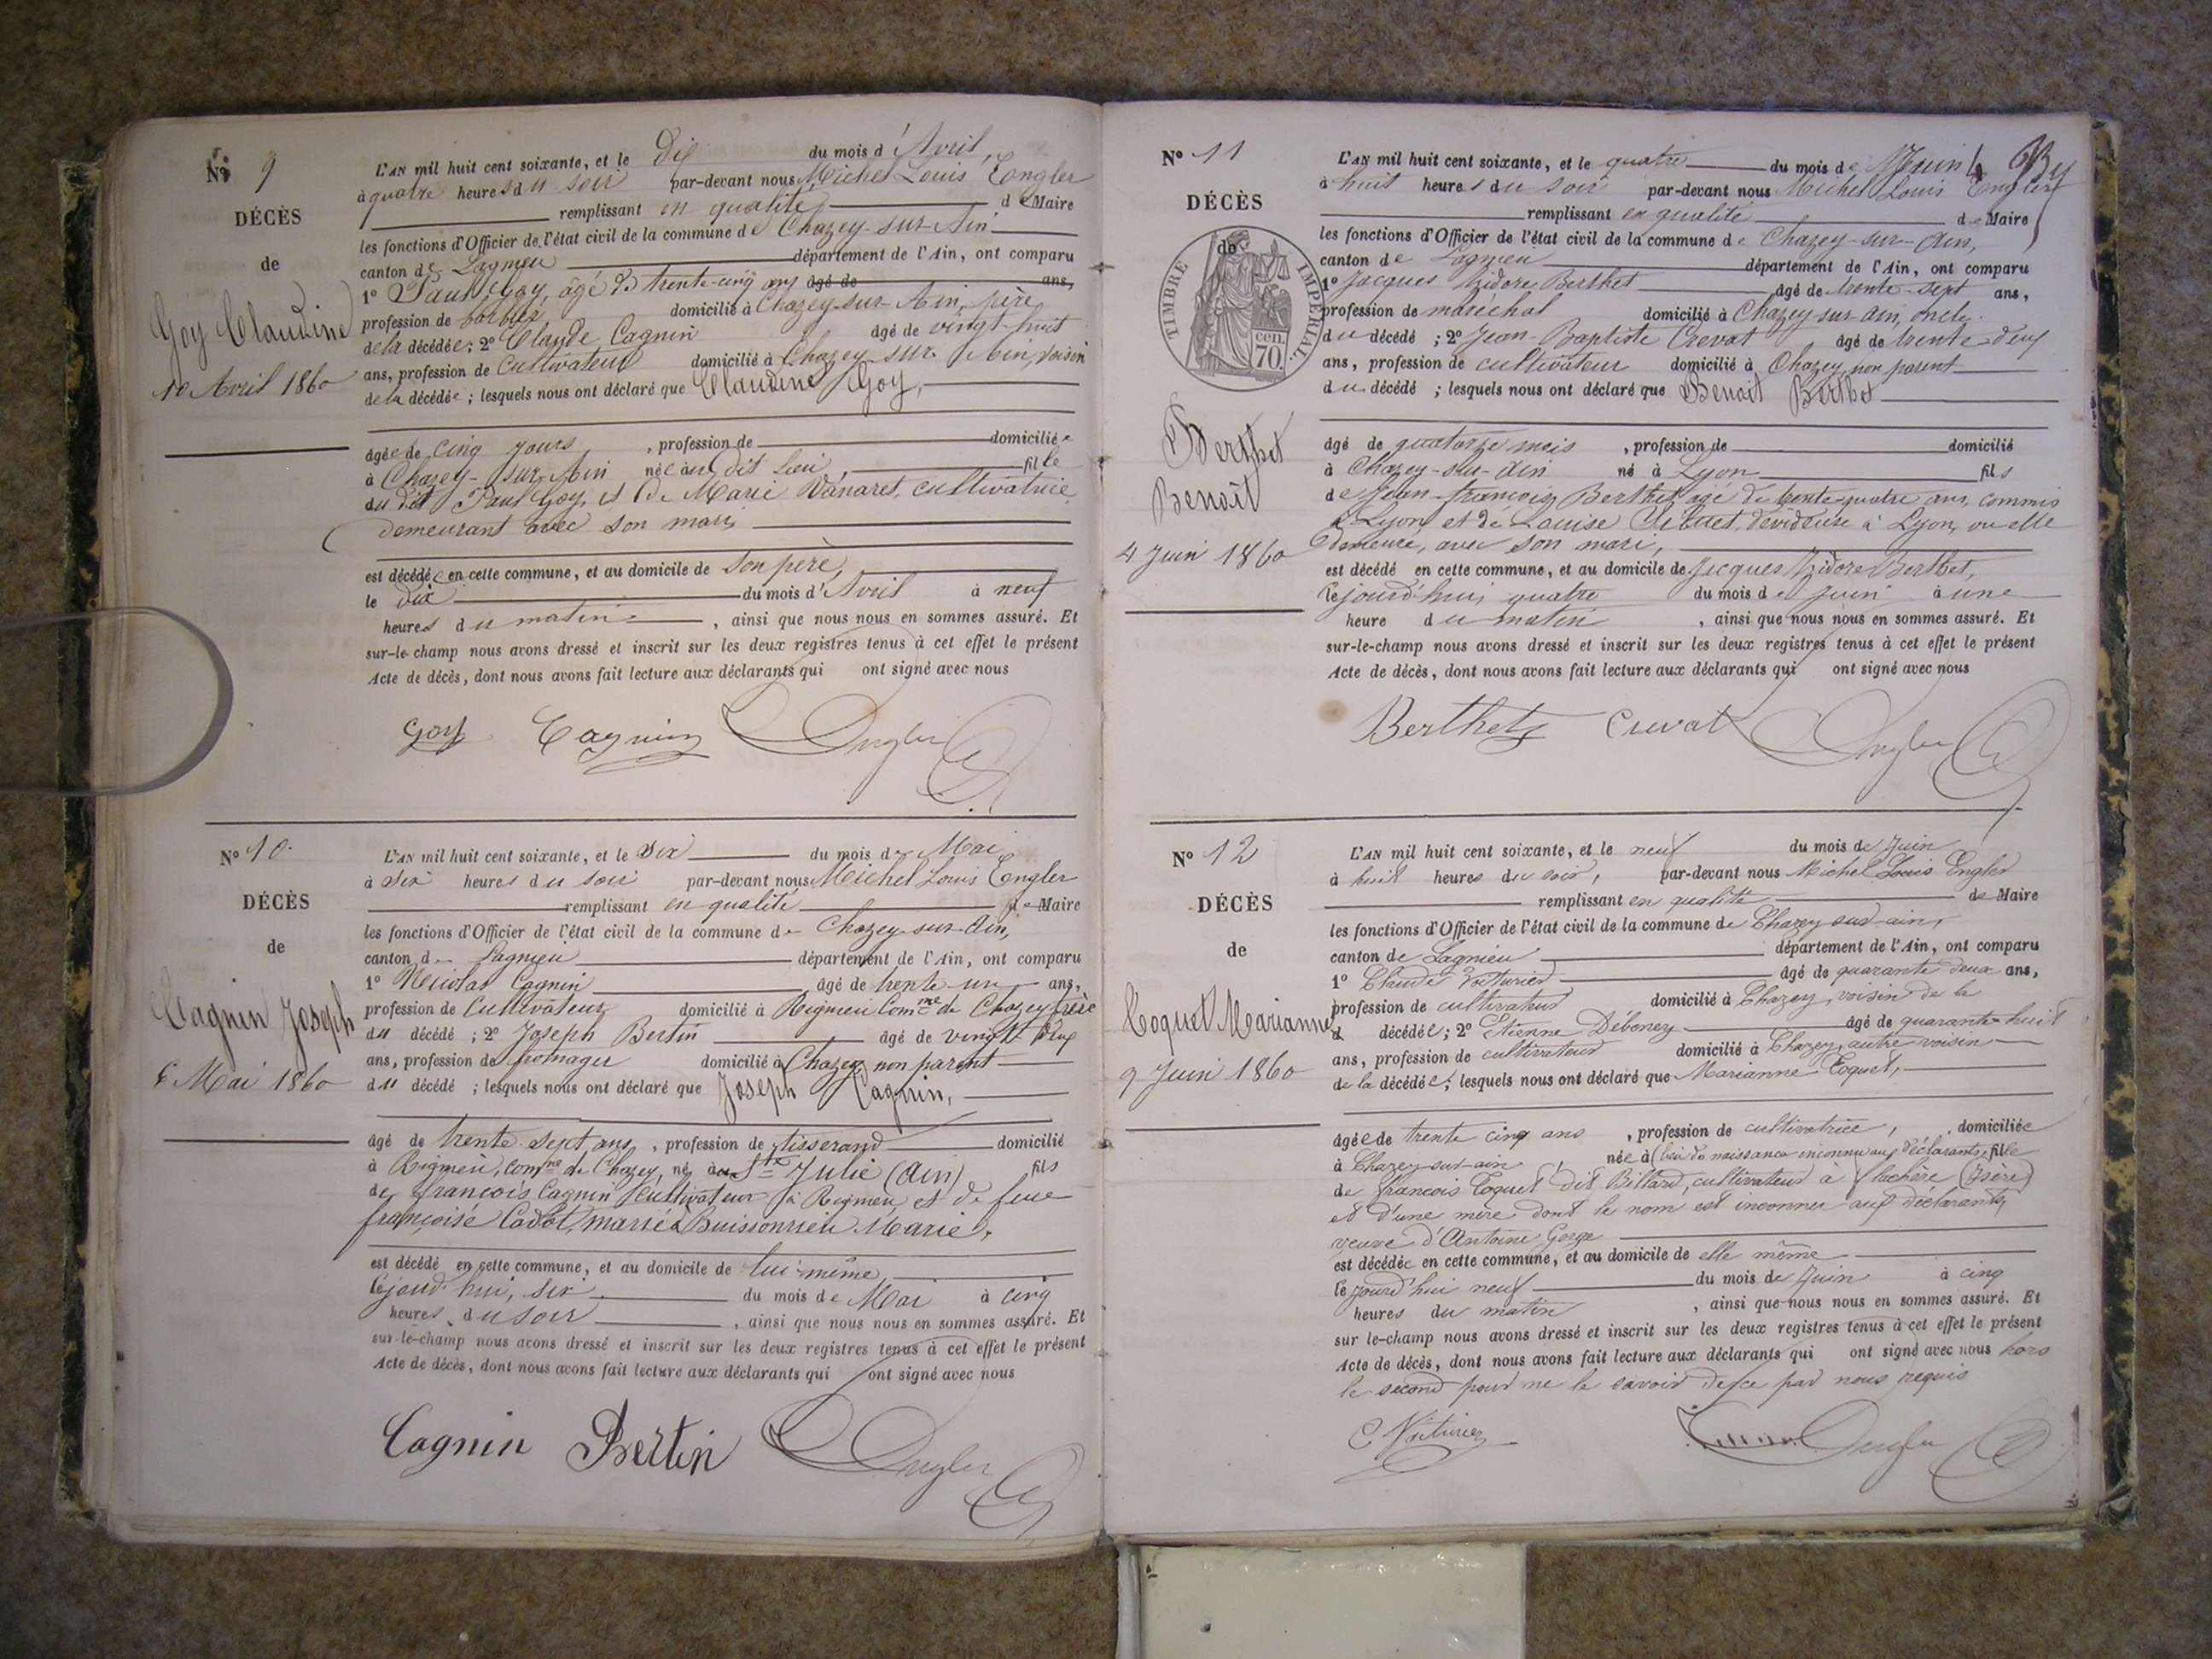 N° 9
DÉCÈS
de
Goy Claudine
10 Avril 1860
L'AN mil huit cent soixante, et le Dix du mois d'Avril,
à quatre heures du soir par-devant nous Michel Louis Engler
remplissant en qualité de Maire
les fonctions d'Officier de l'état civil de la commune de Chazey-sur-Ain
canton de Lagnieu département de l'Ain, ont comparu
1° Paul Goy, âgé de trente-cinq ans âgé de ans,
profession de domicilié à Chazey-sur-Ain, père
de la décédée; 2° Claude Cagnin âgé de vingt-huit
ans, profession de cultivateur domicilié à Chazey-sur-Ain, voisin
de la décédée; lesquels nous ont déclaré que Claudine Goy,
âgée de cinq jours, profession de domiciliée
à Chazey-sur-Ain née au dit lieu, fille
du dit Paul Goy, et de Marie Vanaret, cultivatrice
demeurant avec son mari,
est décédée en cette commune, et au domicile de son père,
le dix du mois d'Avril à neuf
heures du matin, ainsi que nous nous en sommes assuré. Et
sur-le-champ nous avons dressé et inscrit sur les deux registres tenus à cet effet le présent
Acte de décès, dont nous avons fait lecture aux déclarants qui ont signé avec nous
Goy Cagnin Engler
N° 10
DÉCÈS
de
Cagnin Joseph
6 Mai 1860
L'AN mil huit cent soixante, et le six du mois de Mai
à six heures du soir par-devant nous Michel Louis Engler
remplissant en qualité de Maire
les fonctions d'Officier de l'état civil de la commune de Chazey-sur-Ain,
canton de Lagnieu département de l'Ain, ont comparu
1° Nicolas Cagnin âgé de trente-un ans,
profession de Cultivateur domicilié à Rigneu Comne de Chazey frère
du décédé; 2° Joseph Bertin âgé de vingt-deux
ans, profession de fromager domicilié à Chazey non parent
du décédé; lesquels nous ont déclaré que Joseph Cagnin,
âgé de trente-sept ans, profession de tisserand domicilié
à Rigneu, comne de Chazey, né à Ste Julie (Ain) fils
de françois Cagnin Cultivateur à Rigneu et de feue
françoise Cadot, marié à Buissonnier Marie,
est décédé en cette commune, et au domicile de lui-même
lejourd'hui, six du mois de Mai à cinq
heures du soir, ainsi que nous nous en sommes assuré. Et
sur-le-champ nous avons dressé et inscrit sur les deux registres tenus à cet effet le présent
Acte de décès, dont nous avons fait lecture aux déclarants qui ont signé avec nous
Cagnin Bertin Engler
N° 11
DÉCÈS
de
TIMBRE IMPERIAL
70 cen.
Berthet
Benoît
4 Juin 1860
L'AN mil huit cent soixante, et le quatre du mois de Juin
à huit heures du soir par-devant nous Michel Louis Engler
remplissant en qualité de Maire
les fonctions d'Officier de l'état civil de la commune de Chazey-sur-Ain,
canton de Lagnieu département de l'Ain, ont comparu
1° Jacques Izidore Berthet âgé de trente-sept ans,
profession de maréchal domicilié à Chazey-sur-Ain, oncle
du décédé; 2° Jean-Baptiste Crevat âgé de trente-deux
ans, profession de cultivateur domicilié à Chazey, non parent
du décédé; lesquels nous ont déclaré que Benoît Berthet
âgé de quatorze mois, profession de domicilié
à Chazey-sur-Ain né à Lyon fils
de Jean-françois Berthet, agé de trente-quatre ans, commis
à Lyon, et de Louise dévideuse à Lyon, ou elle
demeure, avec son mari,
est décédé en cette commune, et au domicile de Jacques Izidore Berthet,
lejourd'hui, quatre du mois de Juin à une
heure du matin, ainsi que nous nous en sommes assuré. Et
sur-le-champ nous avons dressé et inscrit sur les deux registres tenus à cet effet le présent
Acte de décès, dont nous avons fait lecture aux déclarants qui ont signé avec nous
Berthet Crevat Engler
N° 12
DÉCÈS
de
Coquet Marianne
9 Juin 1860
L'AN mil huit cent soixante, et le neuf du mois de Juin
à huit heures du soir, par-devant nous Michel Louis Engler
remplissant en qualité de Maire
les fonctions d'Officier de l'état civil de la commune de Chazey-sur-ain,
canton de Lagnieu département de l'Ain, ont comparu
1° Claude Voiturier âgé de quarante deux ans,
profession de cultivateur domicilié à Chazey, voisin de la
décédée; 2° Etienne Débeney âgé de quarante-huit
ans, profession de cultivateur domicilié à Chazey, autre voisin
de la décédée; lesquels nous ont déclaré que Marianne Coquet,
âgée de trente cinq ans, profession de cultivatrice, domiciliée
à Chazey-sur-ain, née à (lieu de naissance inconnu aux déclarants, fille
de françois Coquet dit Billard, cultivateur à flachère (Isère)
et d'une mère dont le nom est inconnu aux déclarants,
veuve d'Antoine Gorge
est décédée en cette commune, et au domicile de elle même
le jourd'hui neuf du mois de Juin à cinq
heures du matin, ainsi que nous nous en sommes assuré. Et
sur le-champ nous avons dressé et inscrit sur les deux registres tenus à cet effet le présent
Acte de décès, dont nous avons fait lecture aux déclarants qui ont signé avec nous hors
le second pour ne le savoir de ce par nous requis
C Voiturier Engler